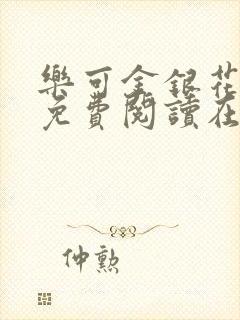 樂可金銀花
免費閱讀在
仲勲